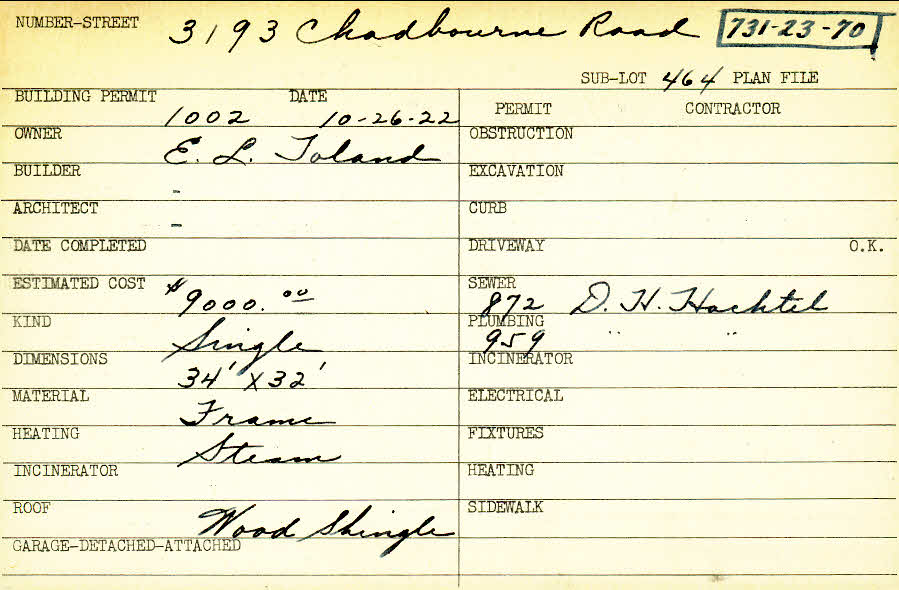 NUMBER-STREET 3193 Chadbourne Road 731-23-70
SUB-LOT 464 PLAN FILE
BUILDING PERMIT DATE
1002 10-26-22
PERMIT CONTRACTOR
OWNER E. L. Toland
OBSTRUCTION
BUILDER -
EXCAVATION
ARCHITECT -
CURB
DATE COMPLETED
DRIVEWAY O.K.
ESTIMATED COST $9000.00
SEWER 872 D. H. Hachtel
KIND Single
PLUMBING 959 " "
DIMENSIONS 34' X 32'
INCINERATOR
MATERIAL Frame
ELECTRICAL
HEATING Steam
FIXTURES
INCINERATOR
HEATING
ROOF Wood Shingle
SIDEWALK
GARAGE-DETACHED-ATTACHED